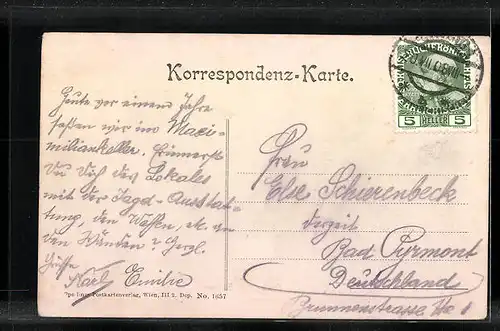 Korrespondenz-Karte.
5 HELLER 5
Heute vor einem Jahre
saßen wir im Maxi-
miliankeller. Erinnerst
Du Dich des Lokales
mit der Jagd-Ausstat-
tung, den Waffen, etc. an
den Wänden &
Grüße
Karl Emilie
Frau
Else Schierenbeck
derzeit
Bad Pyrmont
Deutschland
Brunnenstrasse
Postkartenverlag, Wien, III/2. Dep. No. 1657